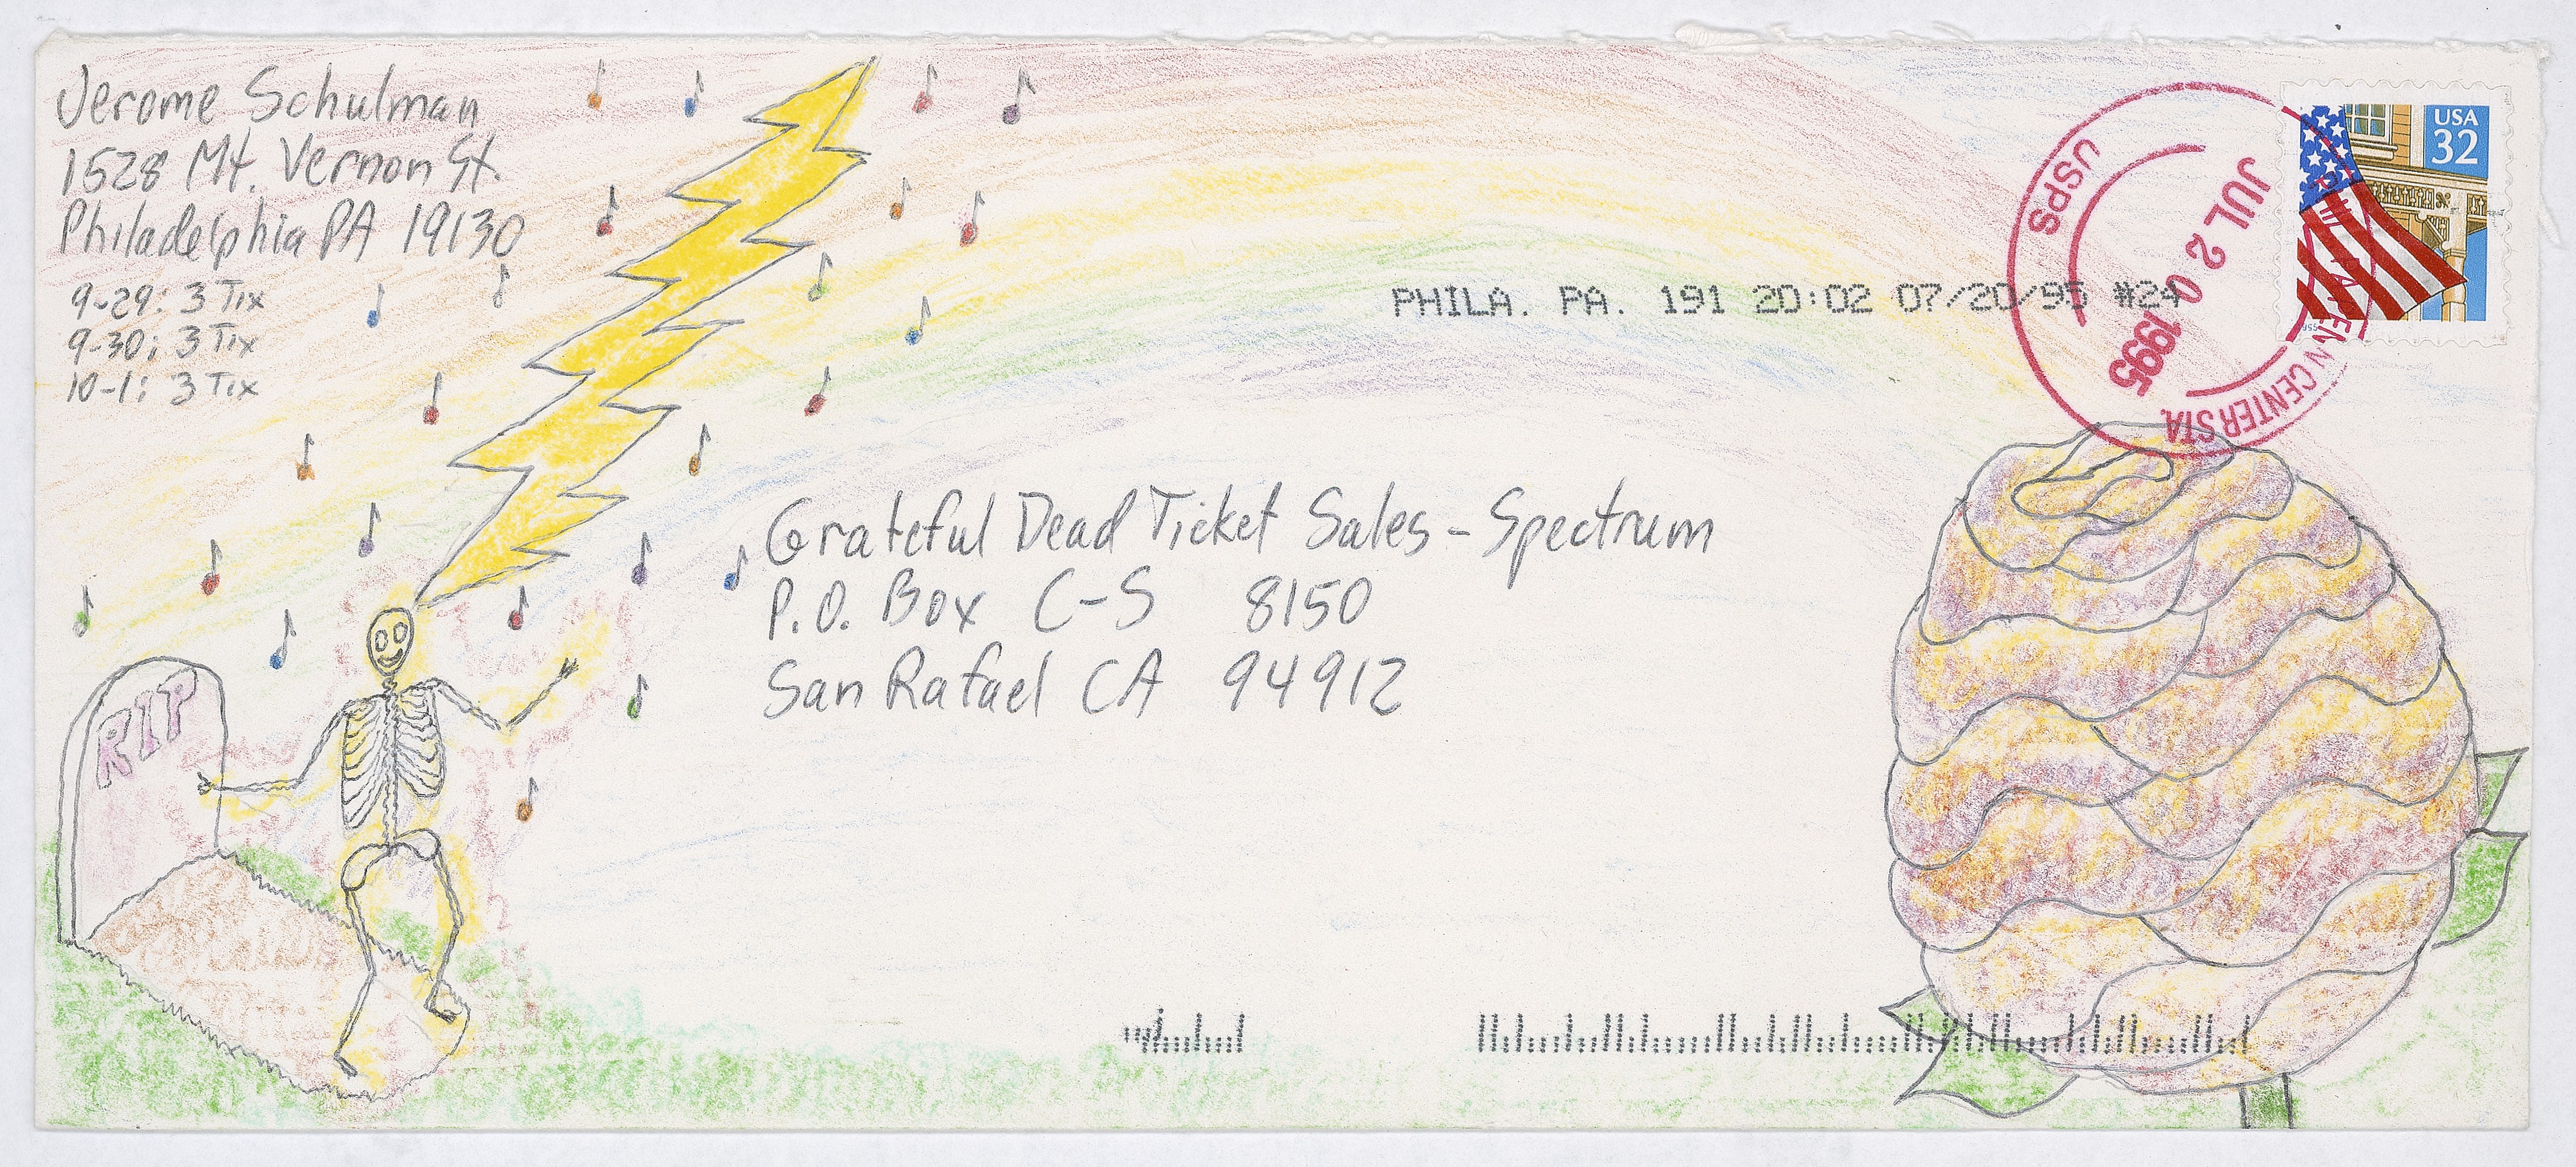 Jerome Schulman
1528 Mt. Vernon St.
Philadelphia PA 19130
9-29: 3 Tix
9-30: 3 Tix
10-1: 3 Tix
USA
32
USPS
JUL 20 1995
PENN CENTER STA.
PHILA. PA. 191 20:02 07/20/95 #24
Grateful Dead Ticket Sales - Spectrum
P.O. Box C-S 8150
San Rafael CA 94912
RIP